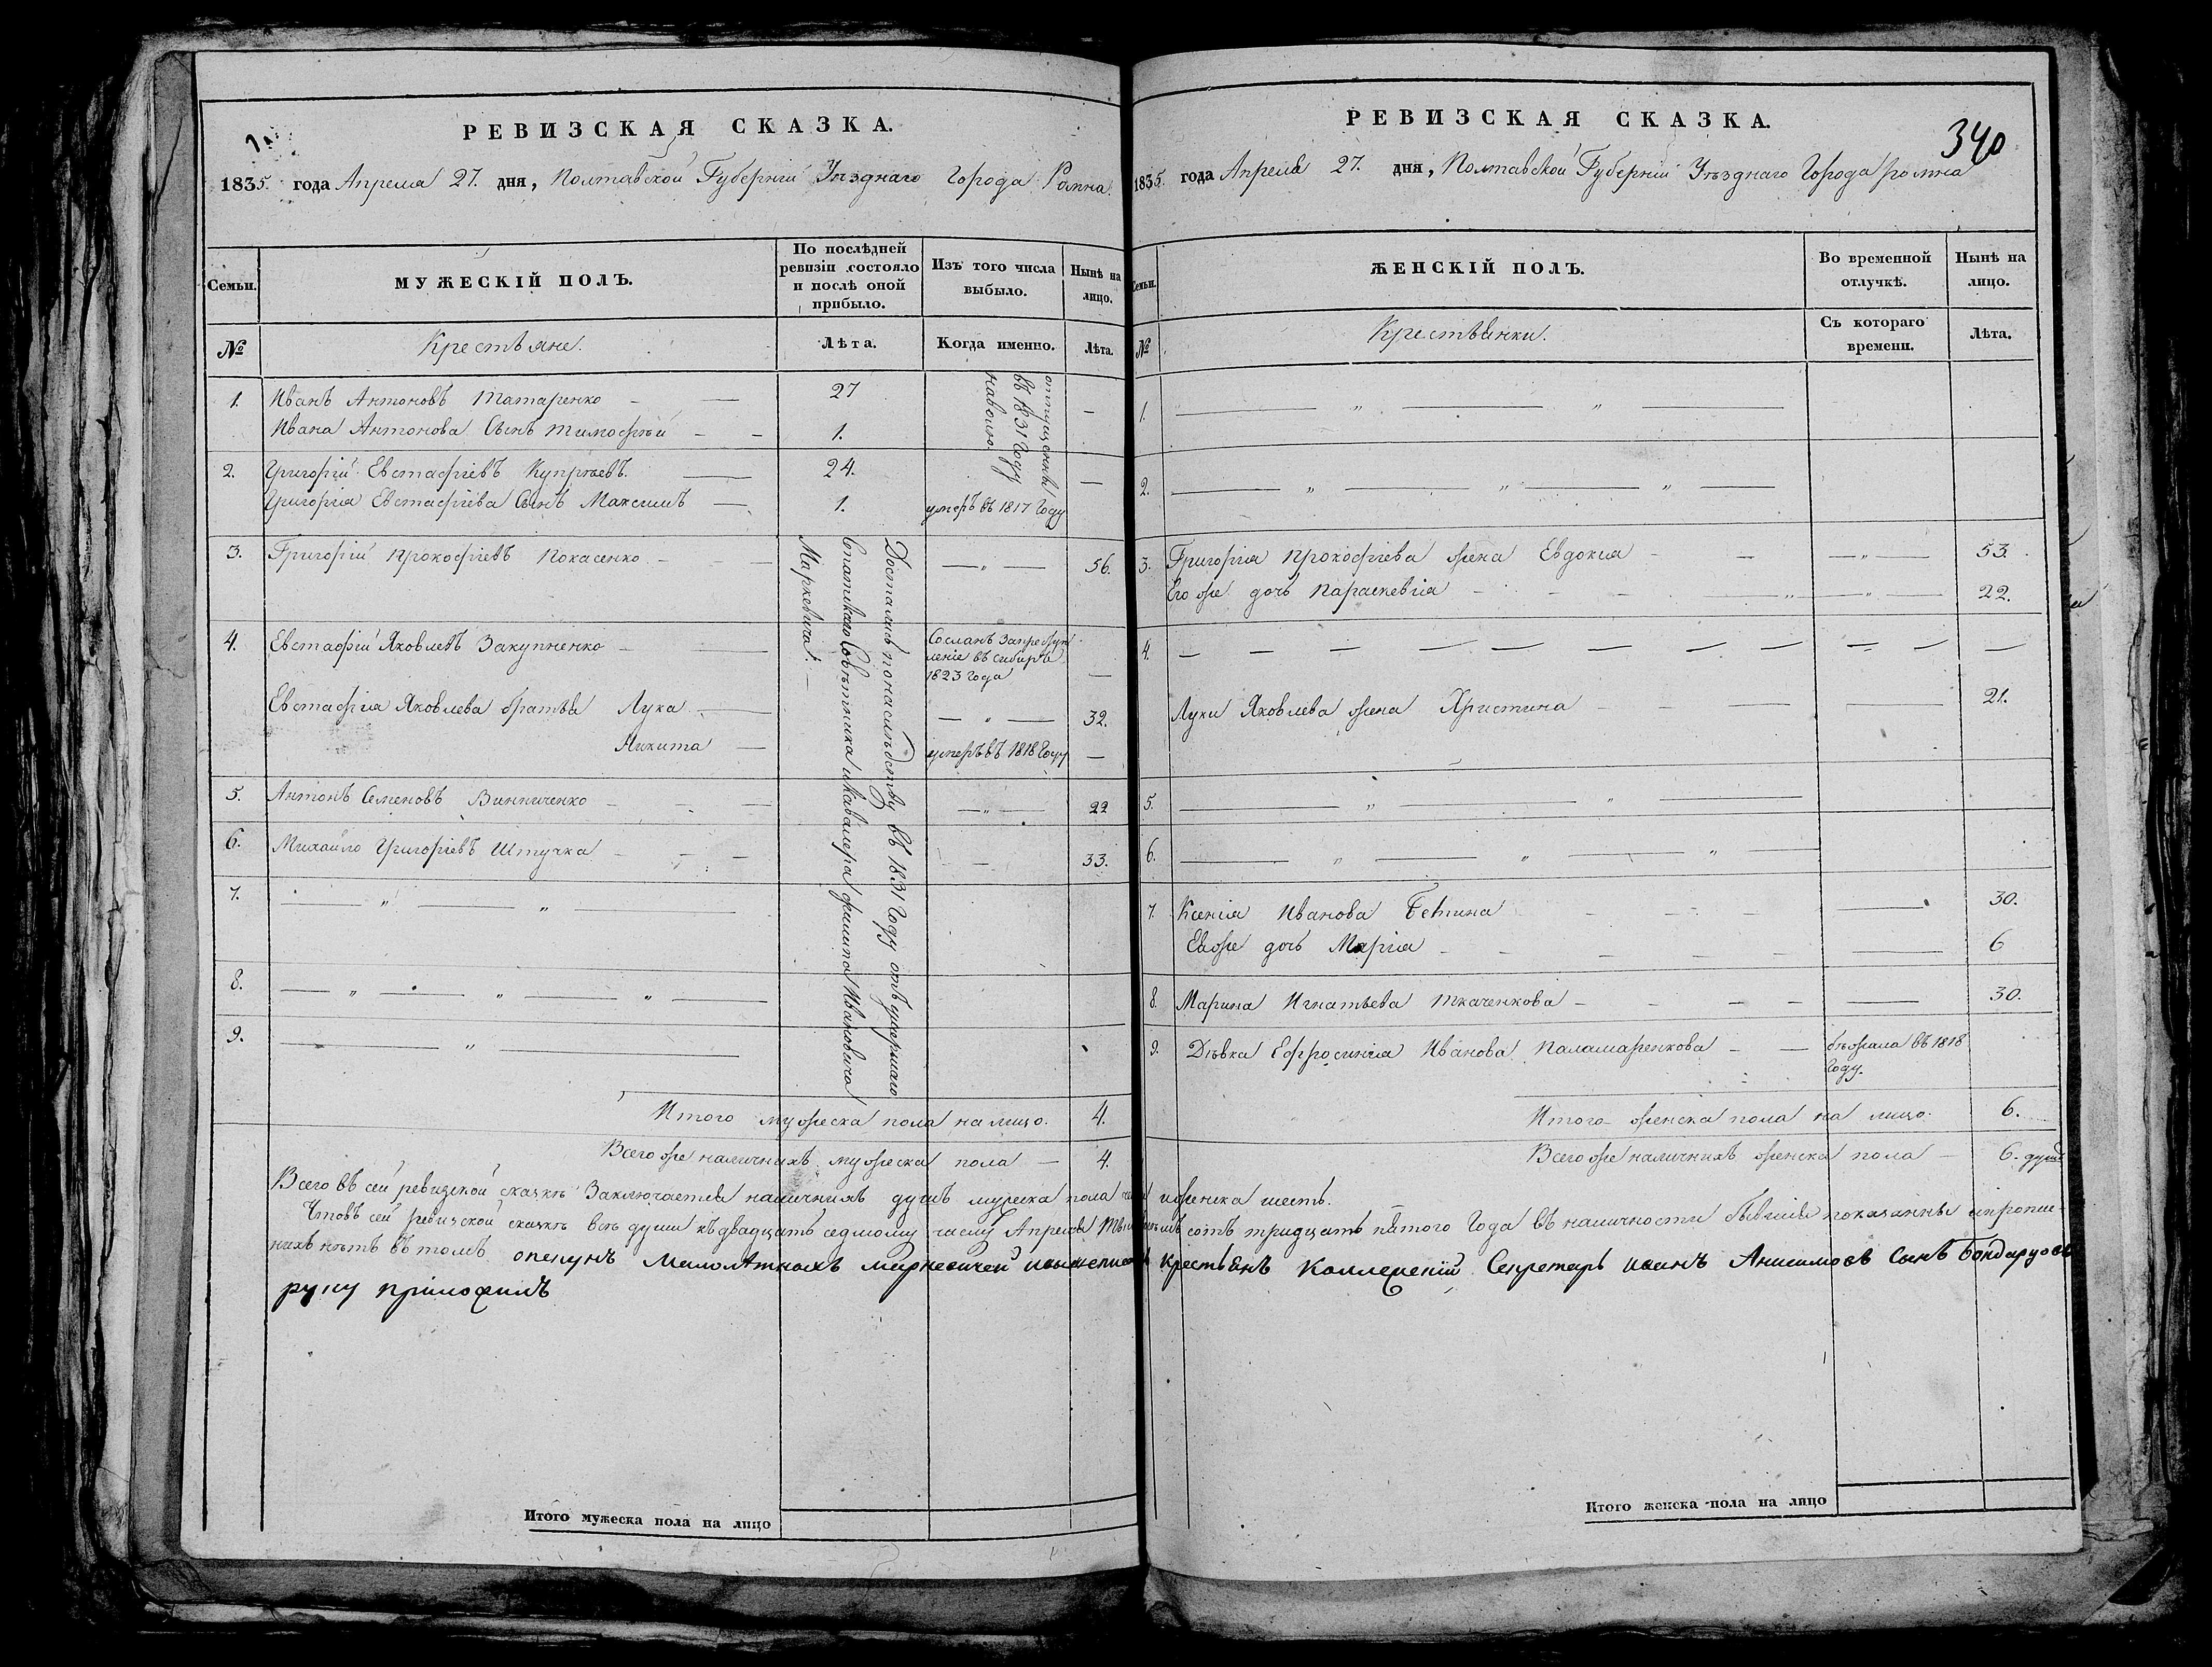 РЕВИЗСКАЯ СКАЗКА.
1835. года Апреля 27. дня, Полтавской Губерніи Уѣзднаго Города Ромна.
Семьи.
МУЖЕСКІЙ ПОЛЪ.
По послѣдней ревизіи состояло и послѣ оной прибыло.
Изъ того числа выбыло.
Нынѣ на лицо.
№
Крестьяне.
Лѣта.
Когда именно.
Лѣта.
1. Иванъ Антоновъ Татаренко 27 —
Ивана Антонова Сынъ Тимофѣй 1.
отпущенны
въ 1831 Году
наволю.
2. Григорій Евстафіевъ Купрѣевъ. 24. —
Григорія Евстафіева Сынъ Максимъ 1. умеръ въ 1817 Году
3. Григорій Прокофіевъ Покасенко — " — 56.
4. Евстафій Яковлевъ Закупненко
Сосланъ запреступ
леніе въ сибирь
1823 года —
Евстафія Яковлева братья Лука — " — 32.
Никита умеръ въ 1818 Году —
5. Антонъ Семеновъ Винниченко — " — 22
6. Михайло Григоріевъ Штучка — 33.
7. — " — " —
8. — " — " — " —
9. — " —
Достались понаслѣдству въ 1831 Году отъ умершаго
Статскаго Совѣтника и Кавалера филипа Ивановича
Маркевича. —
Итого мужеска пола на лицо. 4.
Всегоже наличныхъ мужеска пола — 4.
РЕВИЗСКАЯ СКАЗКА.
340
1835. года Апреля 27. дня, Полтавской Губерніи Уѣзднаго Города ромна
Семьи.
ЖЕНСКІЙ ПОЛЪ.
Во временной отлучкѣ.
Нынѣ на лицо.
№
Крестьянки.
Съ котораго времени.
Лѣта.
1. — " — " —
2. — " — " — " —
3. Григорія Прокофіева жена Евдокія — " — 53.
Его же дочь Параскевія — " — 22.
4. — — — — — — — — —
Луки Яковлева жена Христина — 21.
5. — " — " —
6. — " — " — " —
7. Ксенія Иванова — 30.
Еяже дочь Марія — 6
8. Марина Игнатьева Ткаченкова — 30.
9. Дѣвка Ефросинія Иванова Паламаренкова — бѣжала въ 1818
Году.
Итого женска пола на лицо. 6.
Всегоже наличныхъ женска пола — 6. душъ
Всего въ сей ревизской сказкѣ Заключается наличныхъ душъ мужеска пола иженска шесть.
Чтовъ сей ревизской сказкѣ всѣ души къ двадцать седмому числу Апреля сотъ тридцать пятого Года въ наличности бывшіе показанны
нихъ нѣтъ въ томъ опекунъ Малолѣтныхъ Маркевичей крестьянъ Коллежскій Секретарь иванъ Анисимовъ Сынъ Бондаруовъ
руку приложилъ
Итого мужеска пола на лицо
Итого женска пола на лицо